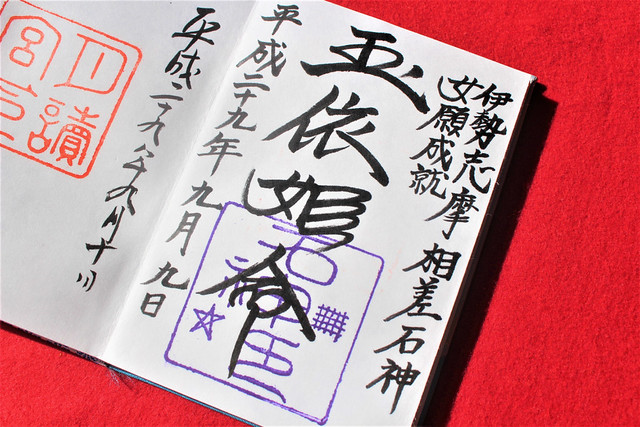 伊勢志摩 相差石神
女願成就
玉依姫命
平成二十九年九月九日
平成二十九年九月十日
月讀
宮